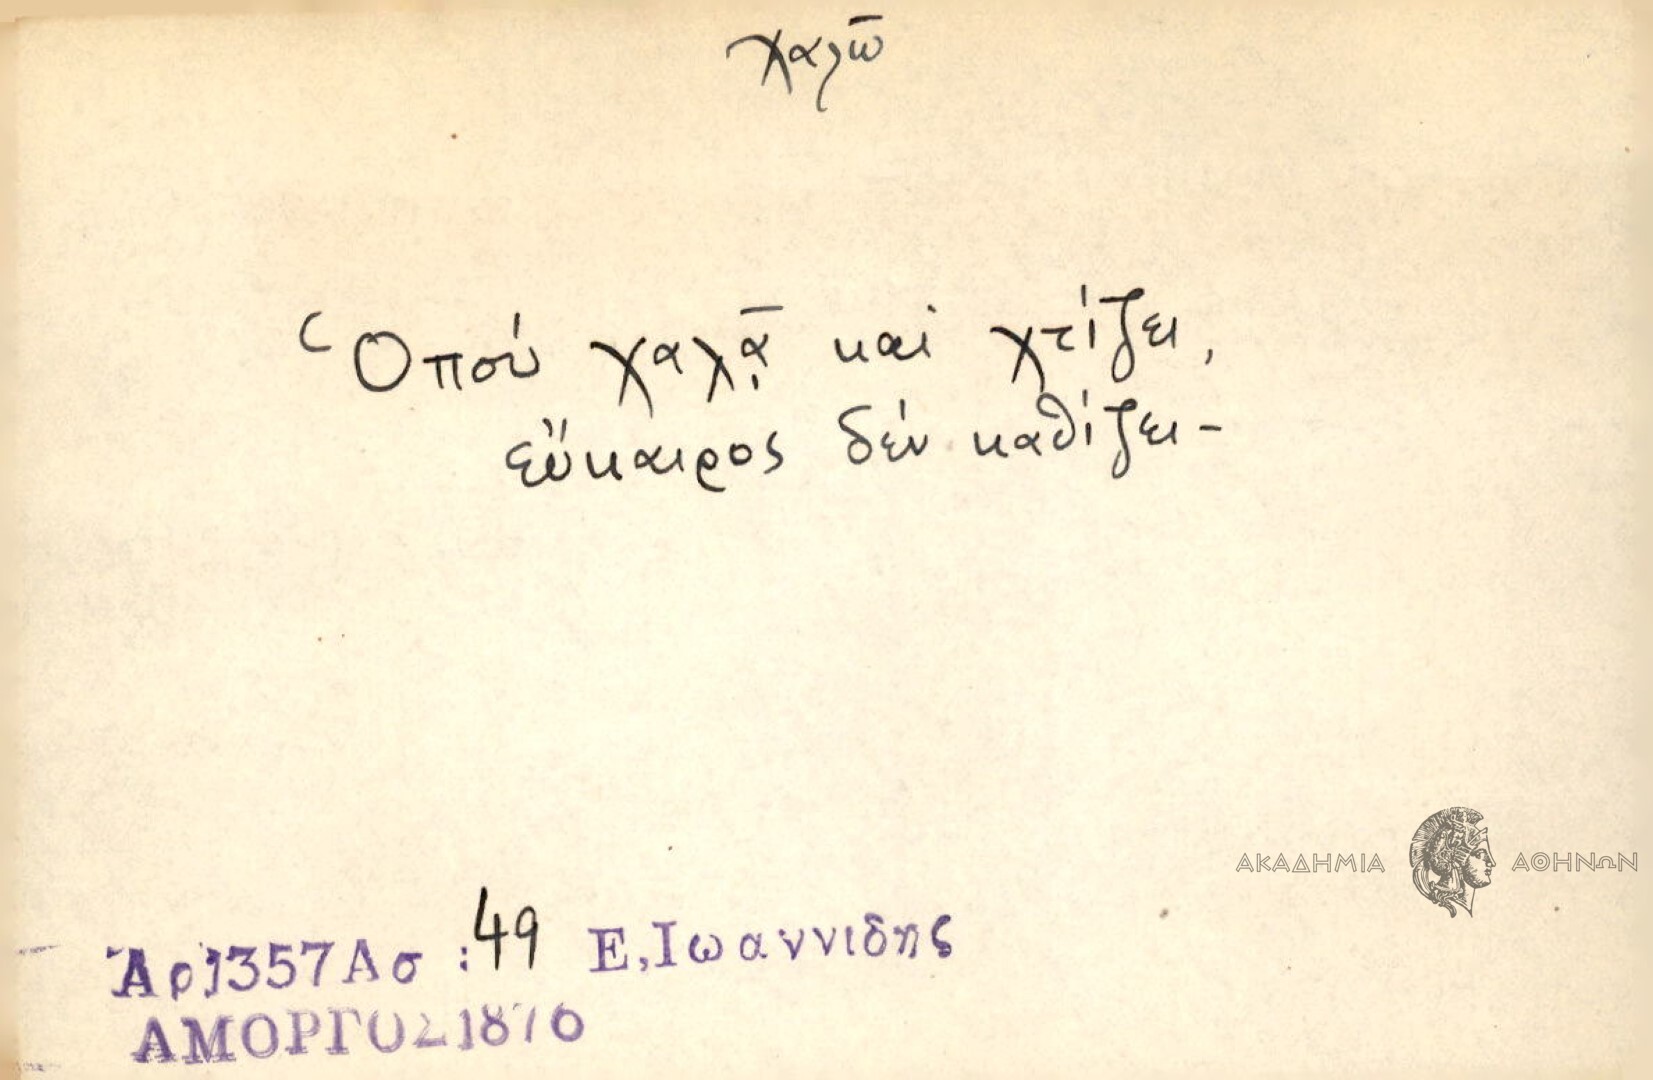 χαλῶ
Ὁποὺ χαλᾷ καὶ χτίζει,
εὔκαιρος δὲν καθίζει -
ΑΚΑΔΗΜΙΑ ΑΘΗΝΩΝ
Ἀρ1357Ασ : 49 Ε,Ιωαννιδης
ΑΜΟΡΓΟΣ1876